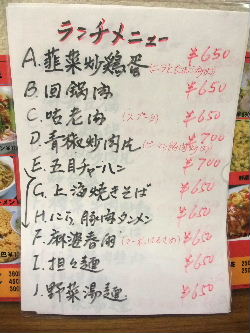 ランチメニュー
A. 韮菜炒鶏蛋 ¥650
B. 回鍋肉 ¥650
C. 咕老肉 (スブタ) ¥650
D. 青椒炒肉片 ¥700
E. 五目チャーハン ¥700
G. 上海焼きそば ¥650
H. にら、豚肉タンメン ¥650
F. 麻婆春雨 ¥650
I. 担々麺 ¥650
J. 野菜湯麺 ¥650